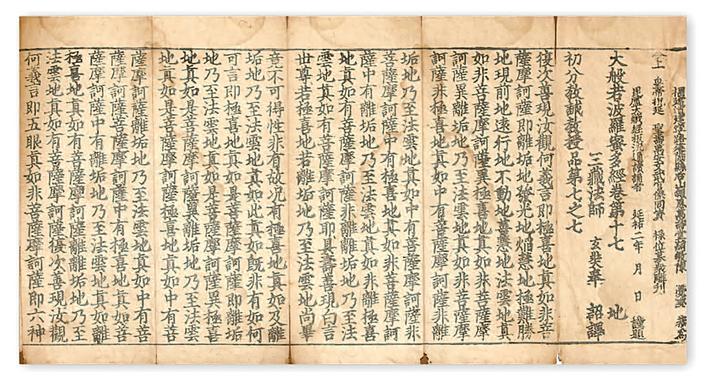 上皇帝祝延 聖壽萬安文武官僚同資 祿位
延祐二年 月 日 謹題
大般若波羅蜜多經卷第十七 地
三藏法師 玄奘奉 詔譯
初分教誡教授品第七之七
復次善現汝觀何義言即極喜地真如非菩
薩摩訶薩即離垢地發光地焰慧地極難勝
地現前地遠行地不動地善慧地法雲地真
如非菩薩摩訶薩異極喜地真如非菩薩摩
訶薩異離垢地乃至法雲地真如非菩薩摩
訶薩非極喜地真如中有菩薩摩訶薩非離
垢地乃至法雲地真如中有菩薩摩訶薩非
菩薩摩訶薩中有極喜地真如非菩薩摩訶
薩中有離垢地乃至法雲地真如非離極喜
地真如有菩薩摩訶薩非離離垢地乃至法
雲地真如有菩薩摩訶薩耶具壽善現白言
世尊若極喜地若離垢地乃至法雲地尚畢
竟不可得性非有故況有極喜地真如及離
垢地乃至法雲地真如此真如既非有如何
可言即極喜地真如是菩薩摩訶薩即離垢
地乃至法雲地真如是菩薩摩訶薩異極喜
地真如是菩薩摩訶薩異離垢地乃至法雲
地真如是菩薩摩訶薩極喜地真如中有菩
薩摩訶薩離垢地乃至法雲地真如中有菩
薩摩訶薩菩薩摩訶薩中有極喜地真如菩
薩摩訶薩中有離垢地乃至法雲地真如離
極喜地真如有菩薩摩訶薩離離垢地乃至
法雲地真如有菩薩摩訶薩復次善現汝觀
何義言即五眼真如非菩薩摩訶薩即六神